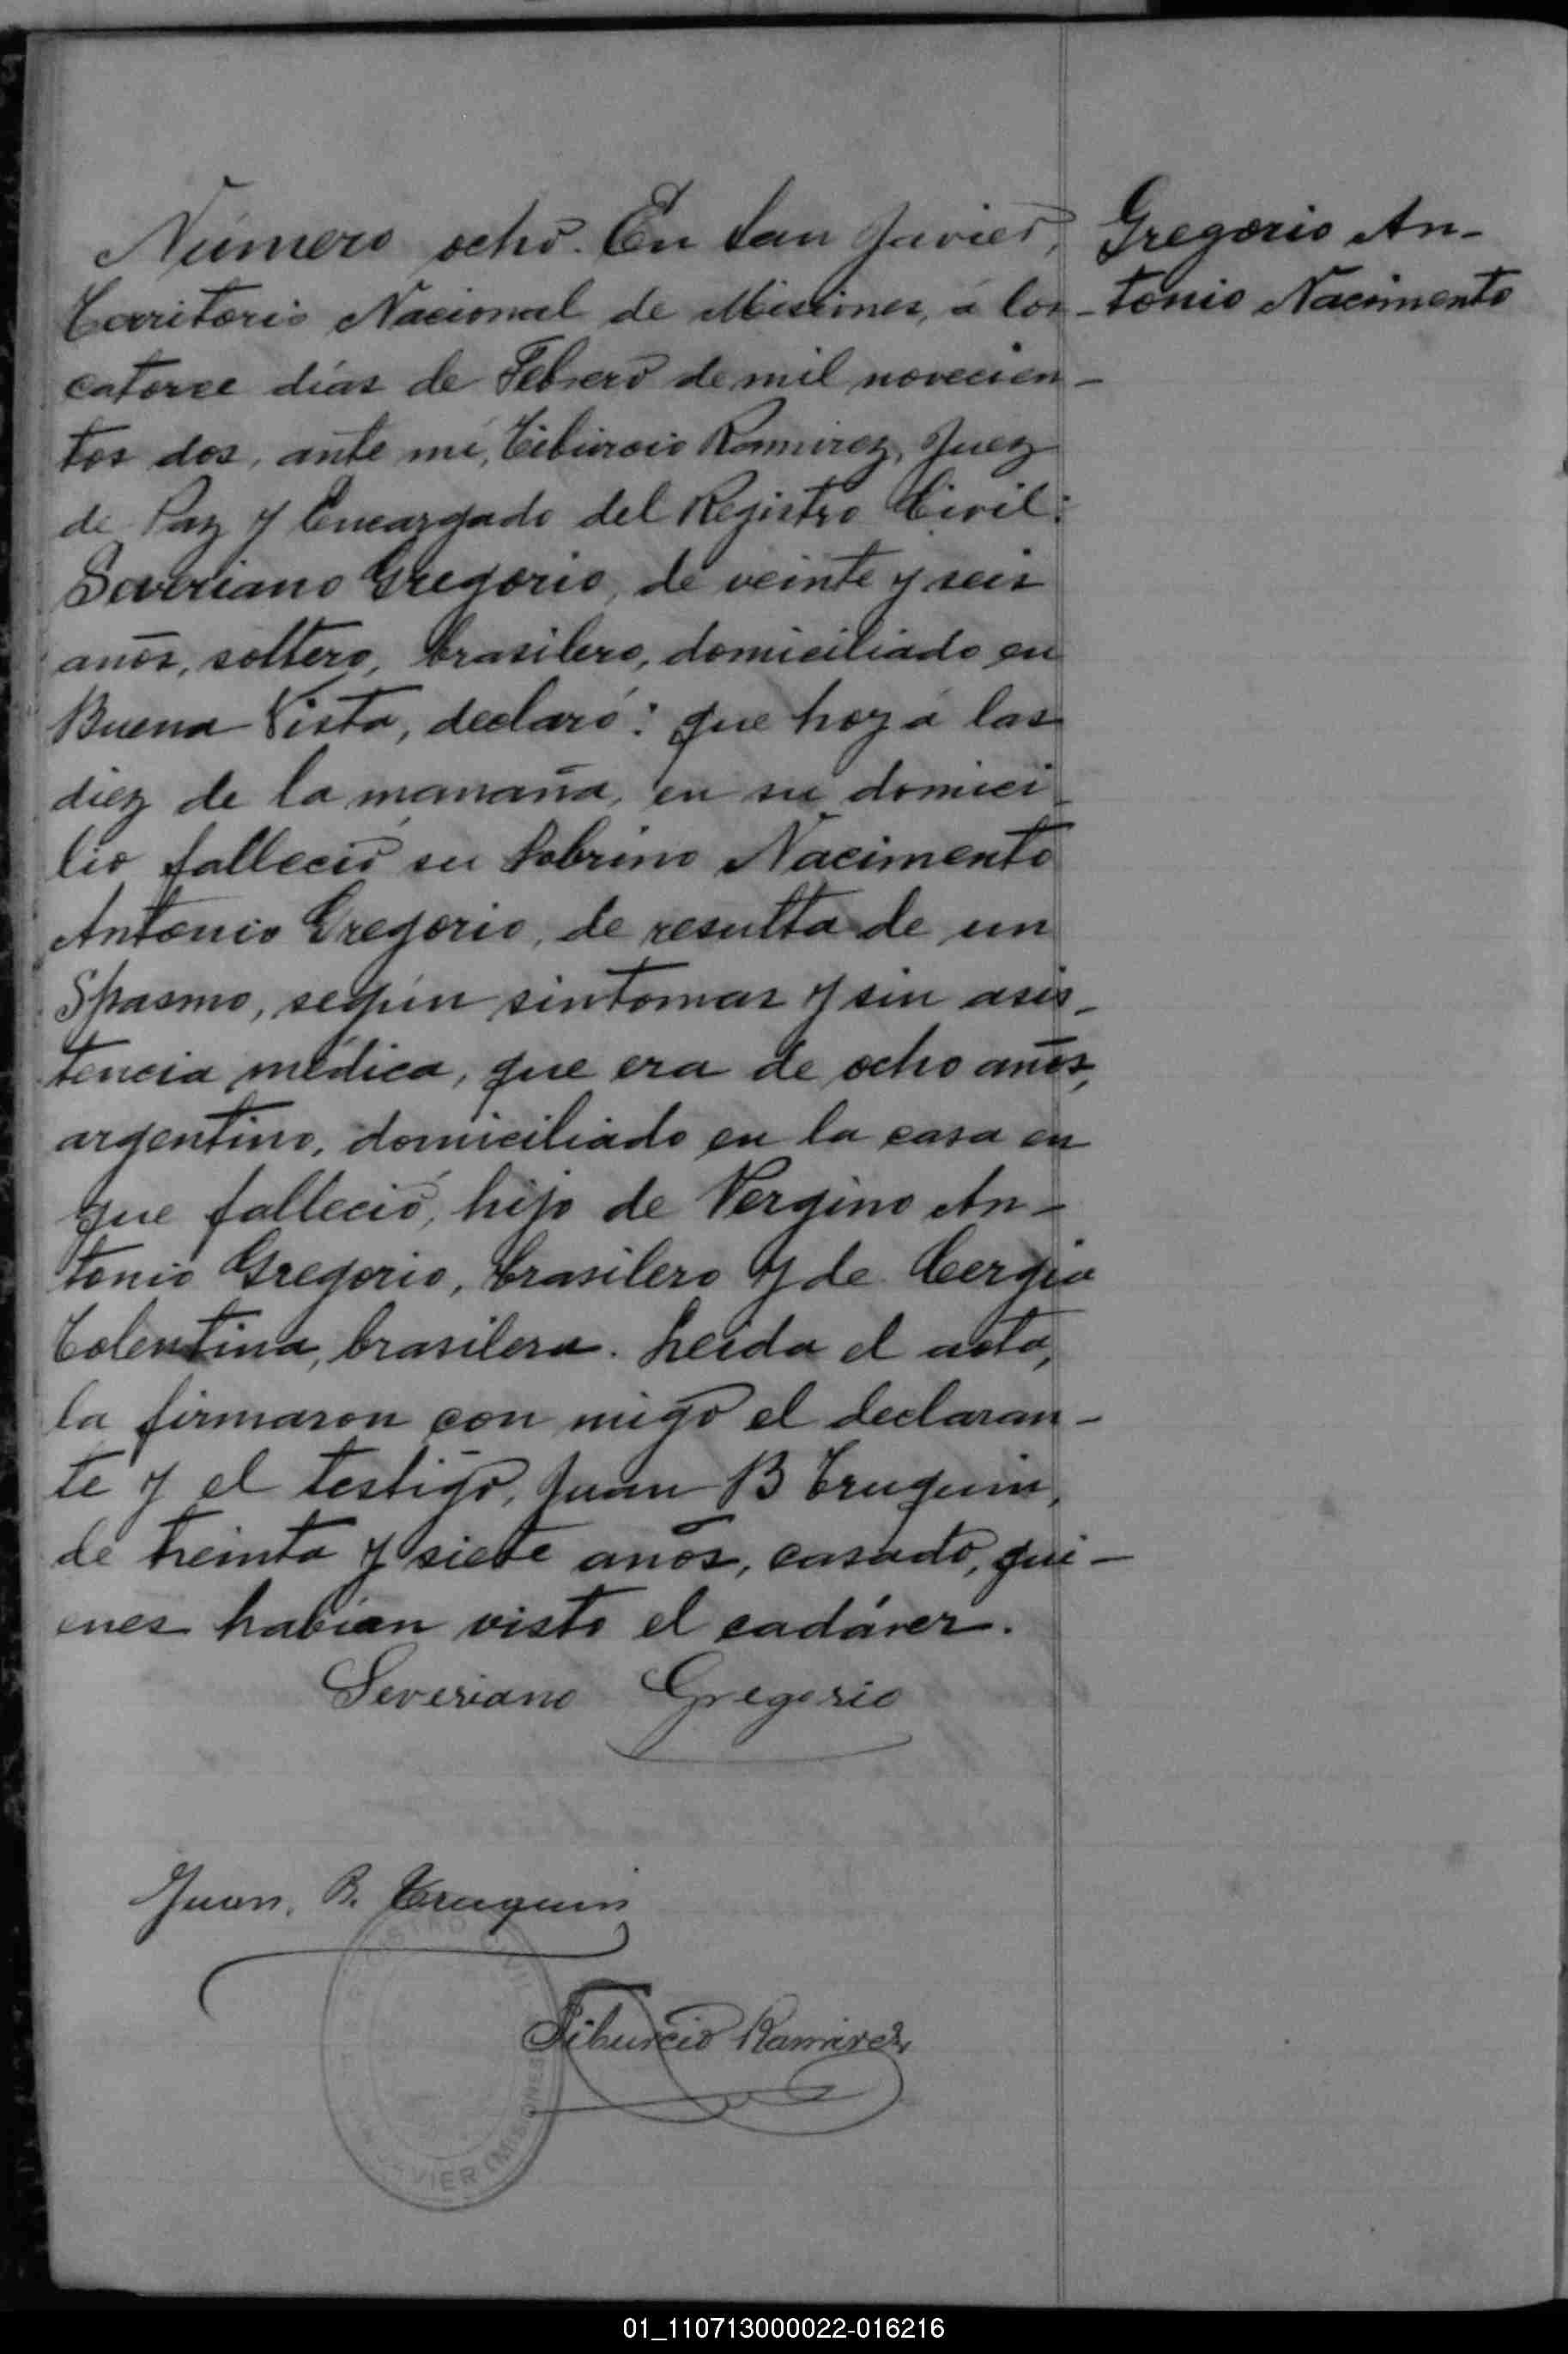 Gregorio An-
tonio Nacimento
Número ocho. En San Javier,
Territorio Nacional de Misiones, á los
catorce días de Febrero de mil novecien-
tos dos, ante mí, Tiburcio Ramirez, Juez
de Paz y Encargado del Registro Civil:
Saveriano Gregorio, de veinte y seis
años, soltero, brasilero, domiciliado en
Buena Vista, declaró: que hoy á las
diez de la mañana, en su domici-
lio falleció su Sobrino Nacimento
Antonio Gregorio, de resulta de un
Spasmo, según sintomas y sin asis-
tencia médica, que era de ocho años,
argentino, domiciliado en la casa en
que falleció, hijo de Vergino An-
tonio Gregorio, brasilero y de Cergia
Tolentina, brasilera. Leida el acta,
la firmaron con migo el declaran-
te y el testigo, Juan B Truquin,
de treinta y siete años, casado, qui-
enes habían visto el cadáver.
Severiano Gregorio
Juan. B. Truquin
Tiburcio Ramirez
01_110713000022-016216